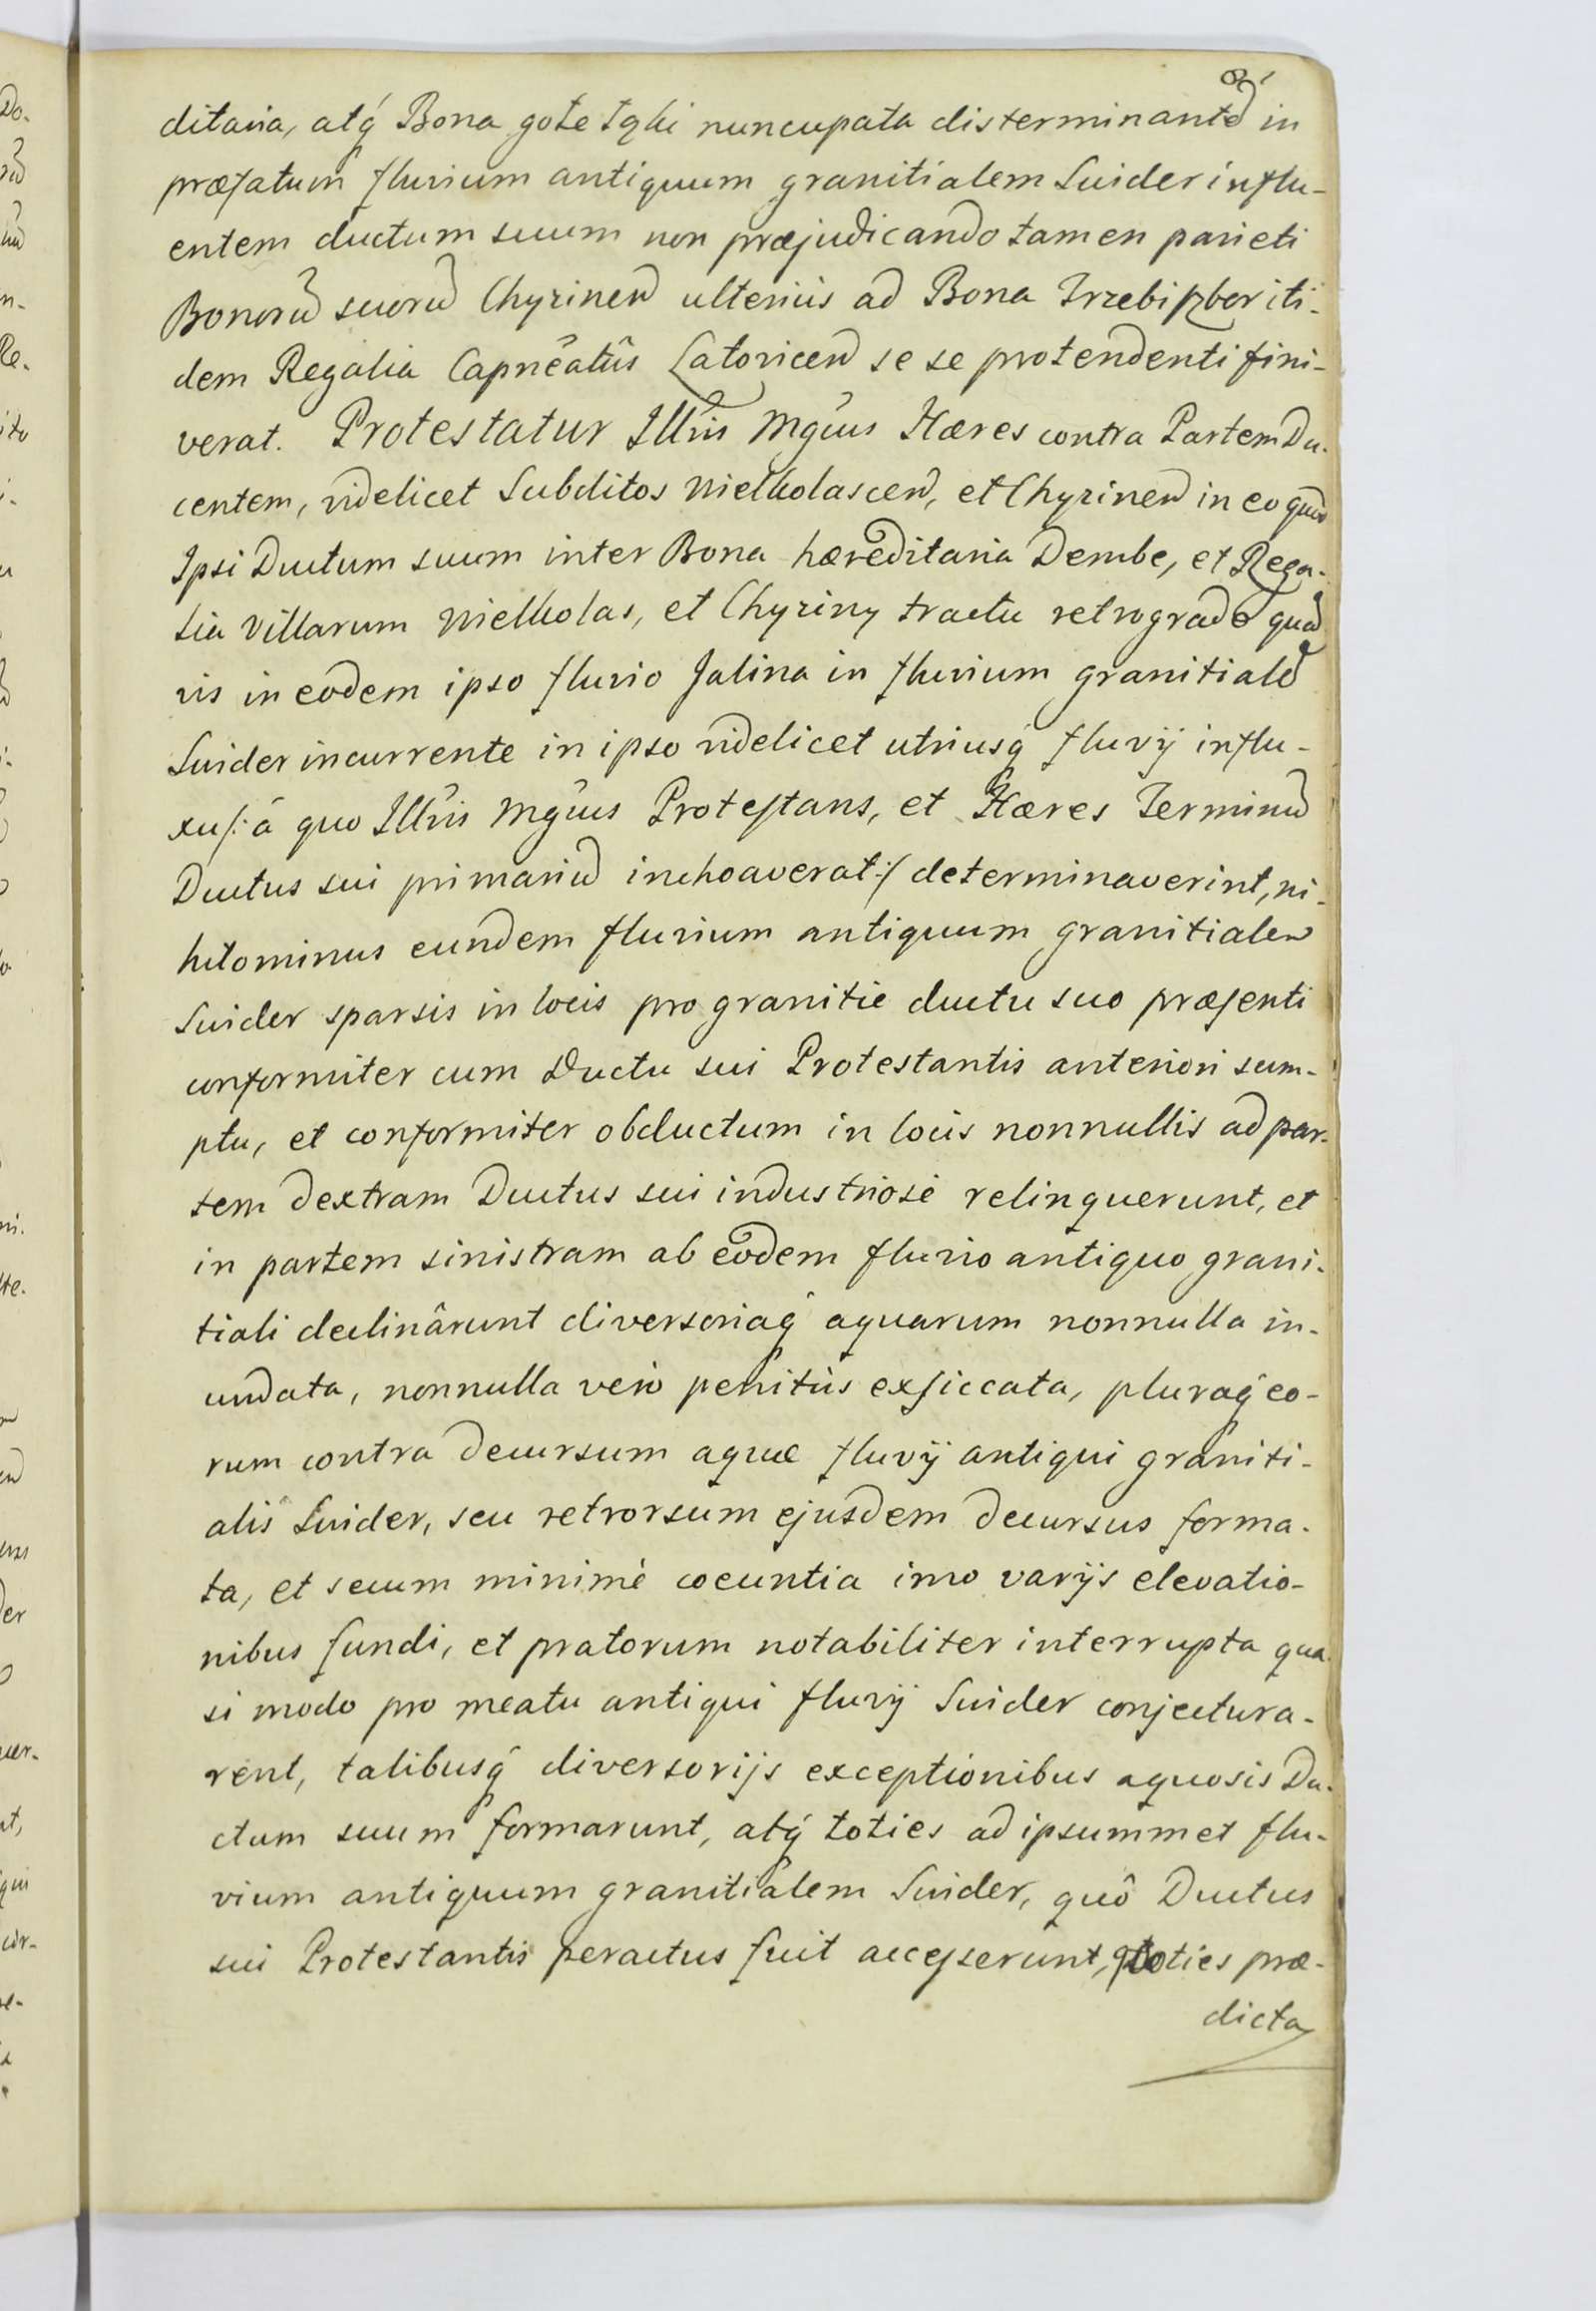 8
ditaria, atq́ Bona gołe łąki nuncupata disterminantē in
præfatum fluvium antiquum granitialem Swider influ-
entem ductum suum non præjudicando tamen parieti
Bonorū suorū Chyzinen̄ ulterius ad Bona Trzebiszbor iti-
dem Regalia Capneatûs Latovicen̄ se se protendenti fini-
verat. Protestatur Illr̃is Mgcus Hæres contra Partem Du-
centem, videlicet Subditos Wielkolascen̄, et Chyzinen̄ in eo quod
Ipsi Ductum suum inter Bona hæreditaria Dembe, et Rega-
lia Villarum Wielkolas, et Chyziny tractu retrogrado quā
vis in eodem ipso fluvio Jalina in fluvium granitialē
Swider incurrente in ipso videlicet utriusq́ fluvij influ-
xu /: à quo Illr̃is Mgcus Protestans, et Hæres Terminū
Ductus sui primariū inchoaverat :/ determinaverint, ni-
hilominus eundem fluvium antiquum granitialem
Swider sparsis in locis pro granitie ductu suo præsenti
conformiter cum Ductu sui Protestantis anteriori sum-
ptu, et conformiter obductum in locis nonnullis ad par-
tem dextram Ductus sui industriosè relinquerunt, et
in partem sinistram ab eodem fluvio antiquo grani-
tiali declinârunt diversoriaq́ aquarum nonnulla in-
undata, nonnulla verò penitùs exsiccata, pluraq́ eo-
rum contra decursum aquæ fluvij antiqui graniti-
alis Swider, seu retrorsum ejusdem decursus forma-
ta, et secum minimè coeuntia imo varijs elevatio-
nibus fundi, et pratorum notabiliter interrupta qua-
si modo pro meatu antiqui fluvij Swider conjectura-
rent, talibusq́ diversorijs exceptionibus aquosis Du-
ctum suum formarunt, atq́ toties ad ipsummet flu-
vium antiquum granitialem Swider, quô Ductus
sui Protestantis peractus fuit accesserunt, quoties præ-
dicta